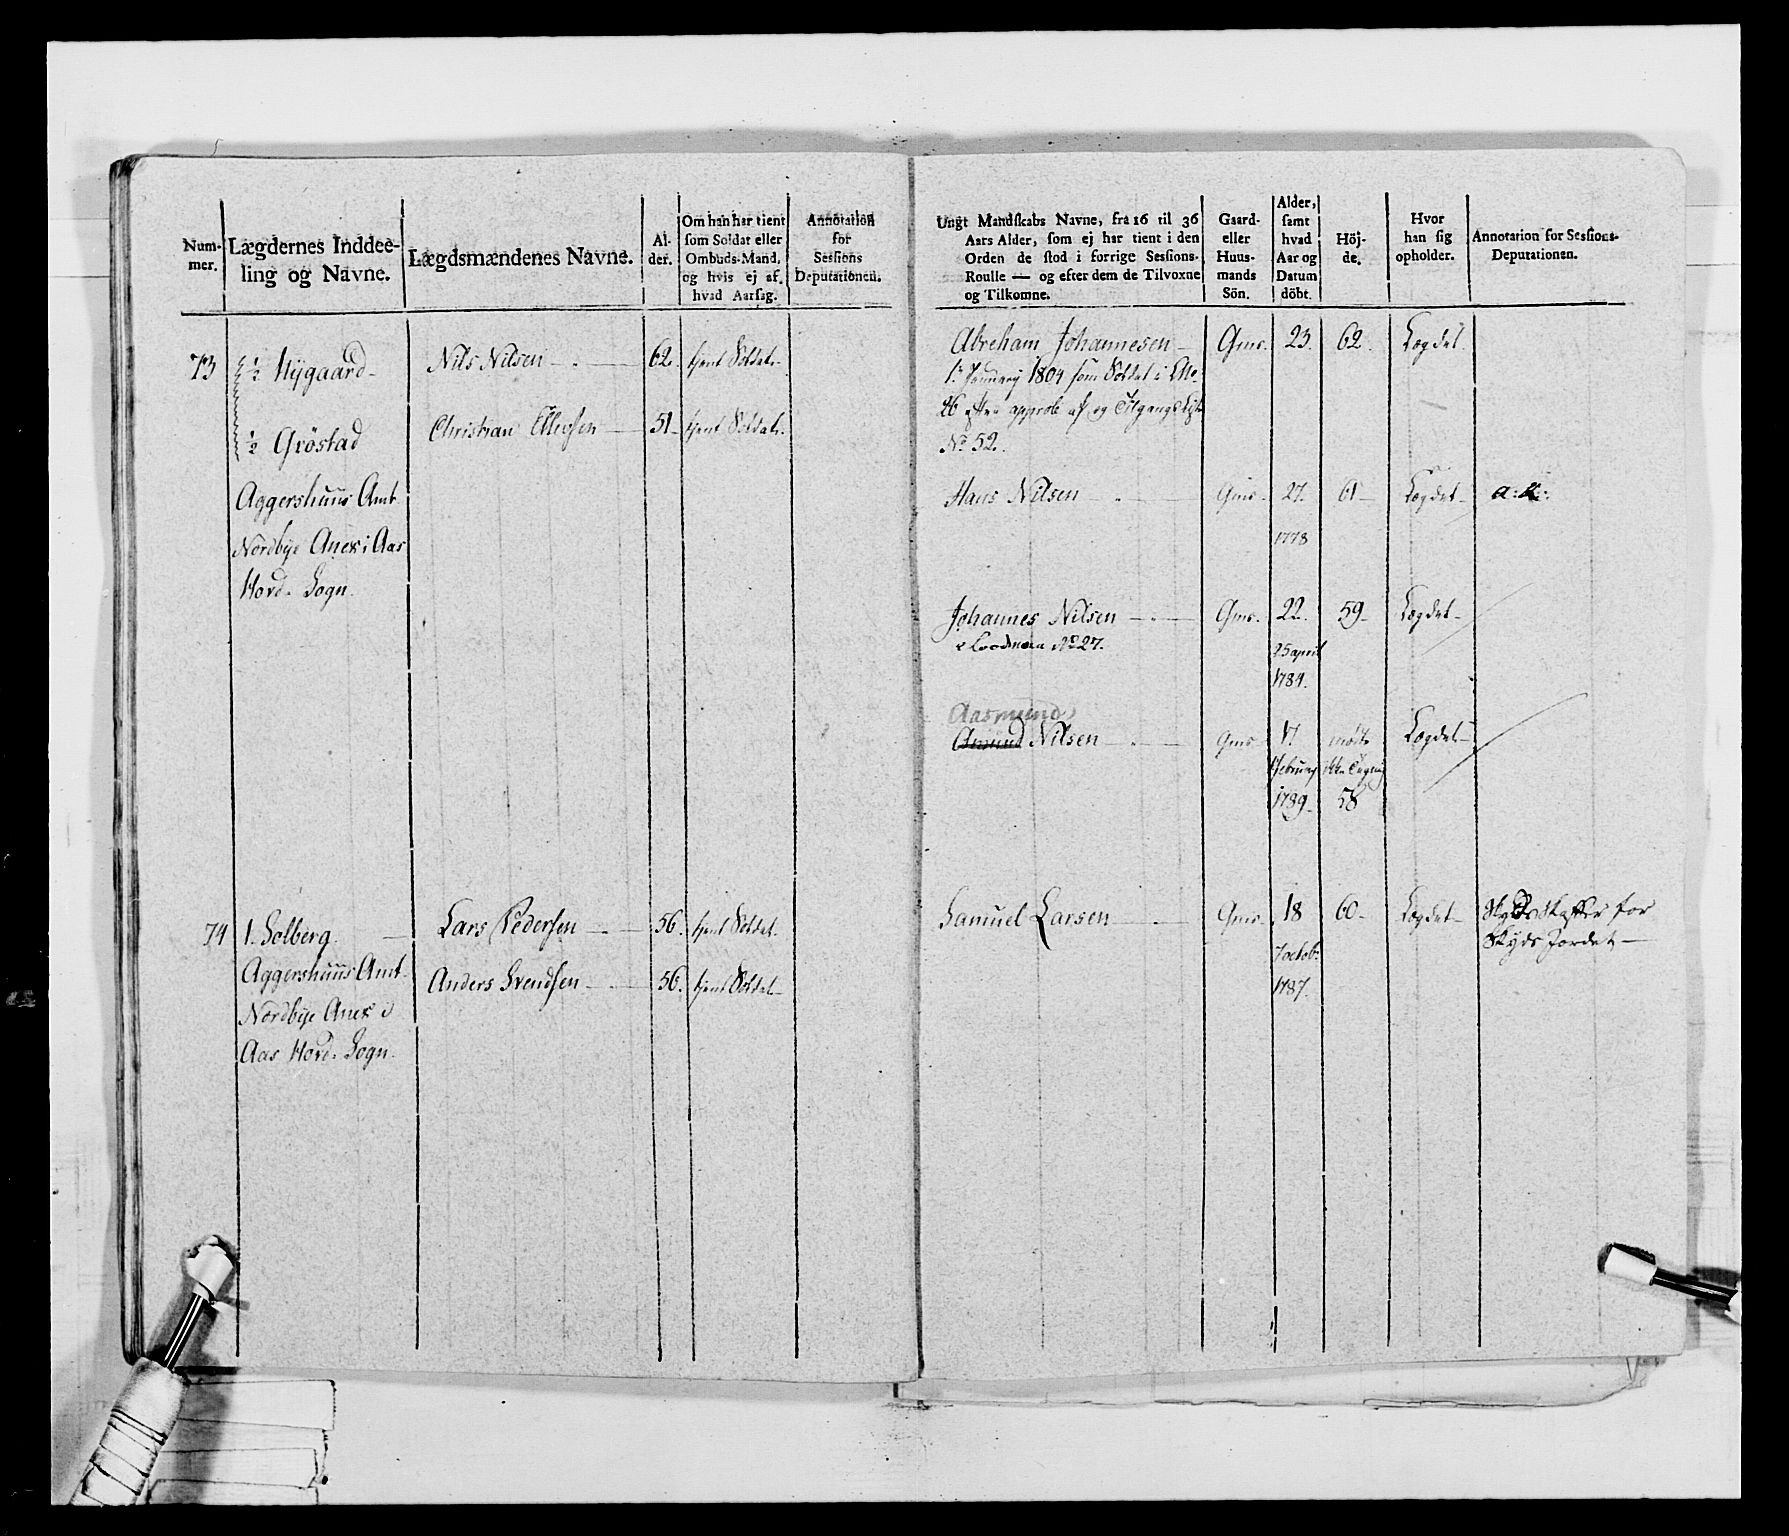 Num-
mer.
Lægdernes Inddee-
ling og Navne.
Lægdsmændenes Navne.
Al-
der.
Om han har tient
som Soldat eller
Ombuds-Mand,
og hvis ej af
hvad Aarsag.
Annotation
for
Sessions
Deputationen.
Ungt Mandskabs Navne, fra 16 til 36
Aars Alder, som ej har tient i den
Orden de stod i forrige Sessions-
Roulle — og efter dem de Tilvoxne
og Tilkomne.
Gaard-
eller
Huus-
mands
Sön.
Alder,
samt
hvad
Aar og
Datum
döbt.
Höj-
de.
Hvor
han sig
opholder.
Annotation for Sessions-
Deputationen.
73
½ Nygaard
Nils Nilsen
62.
tjent Soldat
½ Gröstad
Christian Ellevsen
51
tjent Soldat
Aggershuus Amt
Nordbye Anex i Aas
Hovd. Sogn.
Abreham Johannesen
Gms.
23.
62.
Lægdet
1. January 1804 som Soldat
26 approb og Tilgangs List
No 52.
Hans Nilsen
Gms.
27.
61
Lægdet
1778
Johannes Nilsen
Gms.
22.
59
Lægdet
No 27.
25 april
1784.
Aasmund
Amund Nilsen
Gms
17
mödte
Lægdet
February
ikke
1789
58
74
1. Solberg
Lars Pedersen
56.
tjent Soldat
Aggershuus Amt
Anders Svendsen
56.
tjent Soldat
Nordbye Anex i
Aas Hovd. Sogn.
Samuel Larsen
Gms.
18
60
Lægdet
for
Skyds
7 octob.
1787.